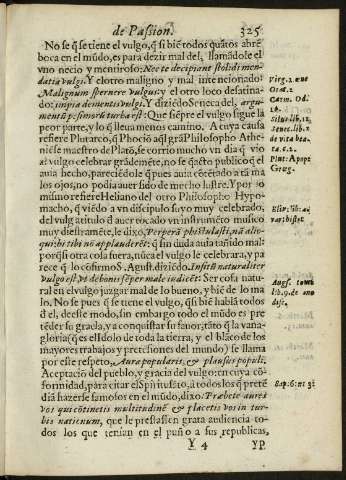 de Passion. 325
No se q̃ se tiene el vulgo, q̃ si biẽ todos quãtos abrẽ
boca en el mũdo, es para dezir mal del, llamãdole el
vno necio y mentiroso: Nec te decipiant stolidi men-
datia vulgi. Y el otro maligno y mal intencionado:
Malignum spernere vulgus: y el otro loco desatina-
do: impia dementis vulgi. Y diziẽdo Seneca del, argu-
mentũ pesimorũ turba est: Que siẽpre el vulgo sigue la
peor parte, y lo q̃ lleua menos camino. A cuya causa
refiere Plutarco, q̃ Phociõ aq̃l grã Philosopho Athe-
niẽse maestro de Platõ, se corrio mucho vn dia q̃ vio
al vulgo celebrar grãdemẽte, no se q̃ acto publico q̃ el
auia hecho, pareciẽdole q̃ pues auia cõtẽtado a tã ma
los ojos, no podia auer sido de mecho lustre. Y por lo
mismo refiere Heliano del otro Philosopho Hypo-
macho, q̃ viẽdo a vn discipulo suyo muy celebrado,
del vulg atitulo d̃ auer tocado vn instrumẽto musico
muy diestramẽte, le dixo, Perperã phistulasti, nã alio-
qui: hi tibi nõ applauderẽt: q̃ sin duda auia tañido mal:
porq̃ si otra cosa fuera, nũca el vulgo le celebrara, y pa
rece q̃ lo cõfirmo S. Agust. diziẽdo. Insitũ naturaliter
vulgo est, vt de bonis sẽper male iudicẽt: Ser cosa natu-
ral en el vulgo juzgar mal de lo bueno, y biẽ de lo ma
lo. No se pues q̃ se tiene el vulgo, q̃ si biẽ hablã todos
d̃ el, deeste modo, sin embargo todo el mũdo es pre
tẽder su gracia, y a conquistar su fauor, tãto q̃ la vana-
gloria (q̃ es el Idolo de toda la tierra, y el blãco de los
mayores trabajos y pretẽsiones del mundo) se llama
por este respeto, Aura popularis, & plausus populi;
Aceptaciõ del pueblo, y gracia del vulgo: en cuya cõ-
formidad, para citar el Spiritu sãto, a todos los q̃ pretẽ
diã hazerse famosos en el mũdo, dixo. Præbete aures
vos qui cõtinetis multitudinẽ & placetis vos in tur-
bis nationum, que le prestassen grata audiencia to-
dos los que tenian en el puño a sus republicas,
Y 4 yp
Virg. 2. ene
Orat. 2
Carm. Od.
16.
Silus lib. 12.
Senec. lib. 1
de vita bea-
ta. c. 2.
Plut. Apop.
Græg.
var: histor.
Augs. tomo
disc.
Sap. 6: nu 3: